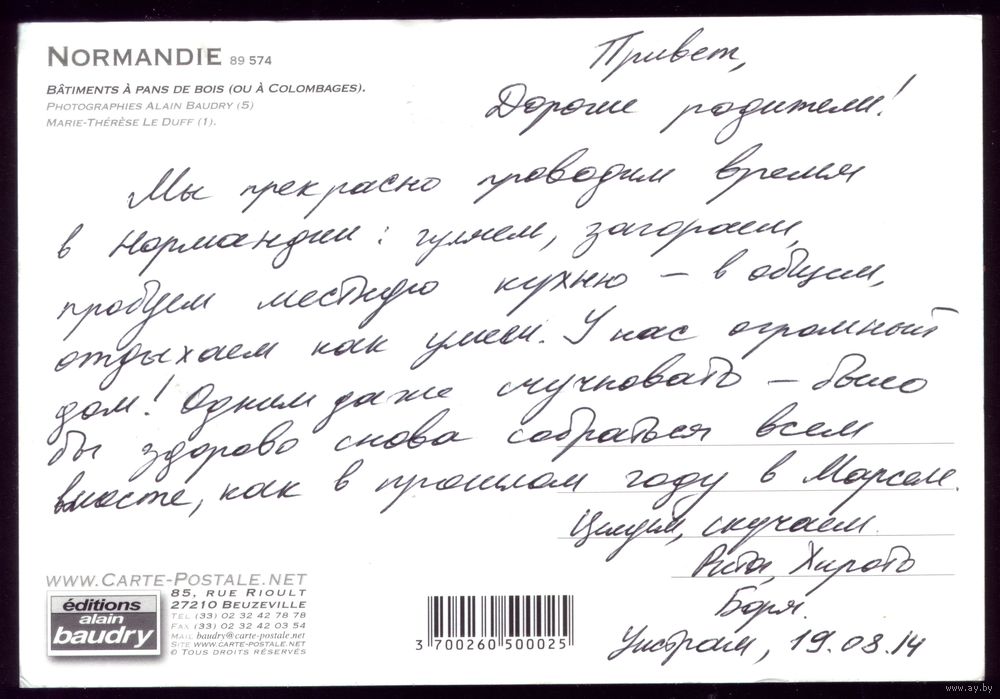 NORMANDIE 89 574
BÂTIMENTS À PANS DE BOIS (OU À COLOMBAGES).
PHOTOGRAPHIES ALAIN BAUDRY (5)
MARIE-THÉRÈSE LE DUFF (1).
Привет,
Дорогие родители!
Мы прекрасно проводим время
в Нормандии: гуляем, загораем,
пробуем местную кухню – в общем,
отдыхаем как умеем. У нас огромный
дом! Одним даже скучновато – было
бы здорово снова собраться всем
вместе, как в прошлом году в Марселе.
Целуем, скучаем.
Рита,
Боря.
Уистреам, 19.03.14
WWW.CARTE-POSTALE.NET
éditions
alain
baudry
85, RUE RIOULT
27210 BEUZEVILLE
TEL (33) 02 32 42 78 78
FAX (33) 02 32 42 03 54
MAIL baudry@carte-postale.net
SITE www.carte-postale.net
© TOUS DROITS RÉSERVÉS
3 700260 500025
www.ay.by